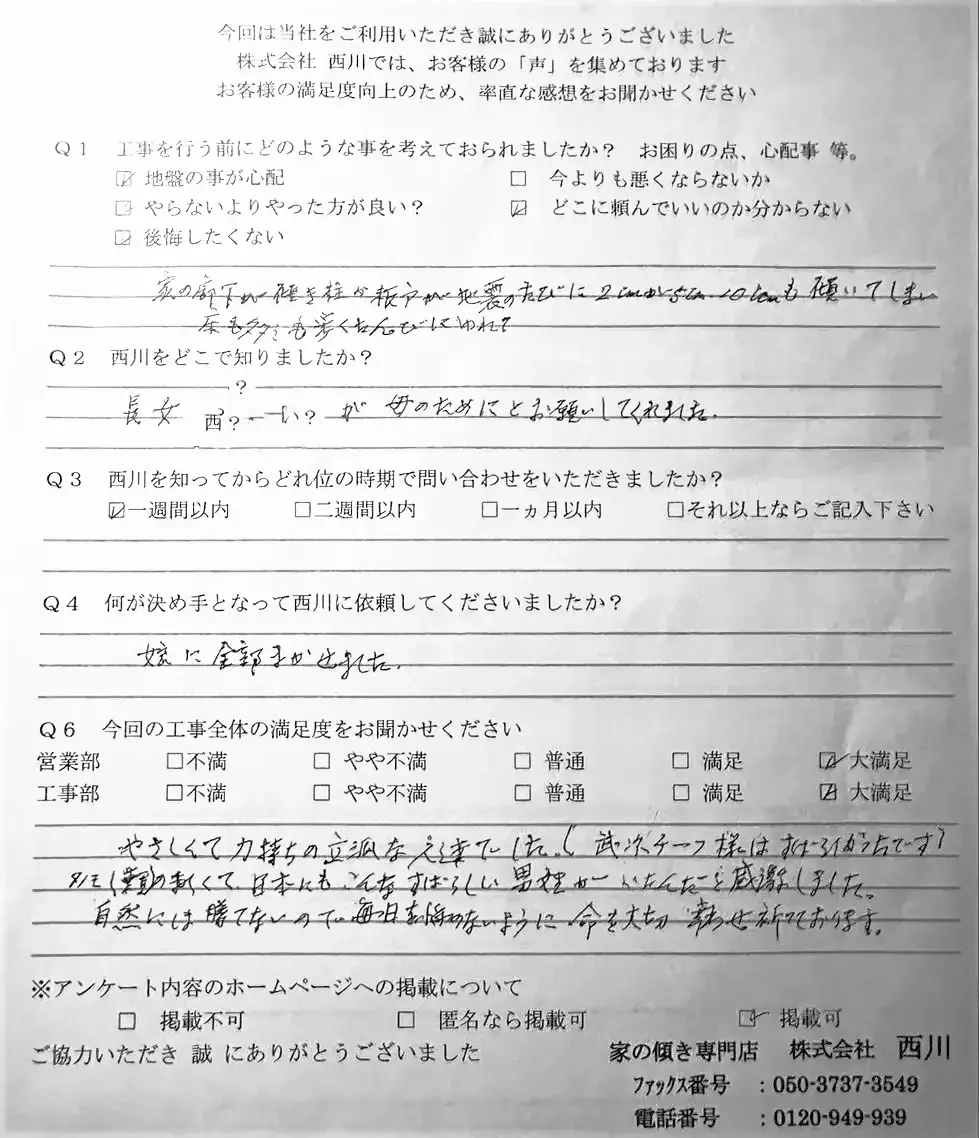 今回は当社をご利用いただき誠にありがとうございました
株式会社 西川では、お客様の「声」を集めております
お客様の満足度向上のため、率直な感想をお聞かせください
Q1 工事を行う前にどのような事を考えておられましたか? お困りの点、心配事 等。
☑ 地盤の事が心配 □ 今よりも悪くならないか
☑ やらないよりやった方が良い? ☑ どこに頼んでいいのか分からない
☑ 後悔したくない
家の廊下が傾き柱が板戸が地震のたびに2cmが5cm 10cmも傾いてしまい
床もタタミも歩くたんびにゆれて
Q2 西川をどこで知りましたか?
?
長女 西?ーい?が 母のためにとお願いしてくれました。
Q3 西川を知ってからどれ位の時期で問い合わせをいただきましたか?
☑一週間以内 □二週間以内 □一ヵ月以内 □それ以上ならご記入下さい
Q4 何が決め手となって西川に依頼してくださいましたか?
に全部まかせました。
Q6 今回の工事全体の満足度をお聞かせください
営業部 □不満 □ やや不満 □ 普通 □ 満足 ☑ 大満足
工事部 □不満 □ やや不満 □ 普通 □ 満足 ☑ 大満足
やさしくて力持ちの立派な 達でした。( チーフ様はすばらしかったです)
くて、日本にもこんなすばらしい男 がいたんだと感激しました。
自然には勝てないので毎日を悔やめないように 命を大切 幸せ祈っております。
※アンケート内容のホームページへの掲載について
□ 掲載不可 □ 匿名なら掲載可 ☑ 掲載可
ご協力いただき 誠 にありがとうございました
家の傾き専門店 株式会社 西川
ファックス番号 :050-3737-3549
電話番号 :0120-949-939